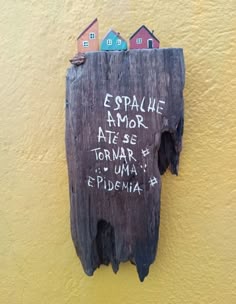 ESPALHE
AMOR
ATÉ SE
TORNAR #
UMA
EPIDEMIA #